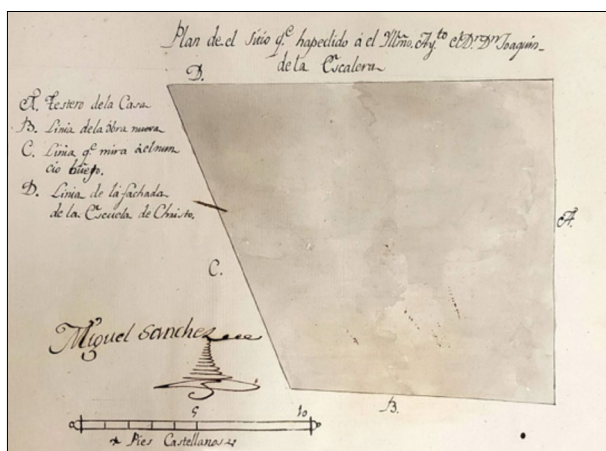 Plan de el sitio q.e ha pedido á el Yltmo. Ay.to el D.r D.n Joaquin
de la Escalera
D.
A. Testero de la Casa
B. Linia de la obra nueva
C. Linia q.e mira ácl nun
cio buejo.
D. Linia de la fachada
de la Escuela de Christo.
A.
C.
Miguel Sanchez
B.
5
10
Pies Castellanos